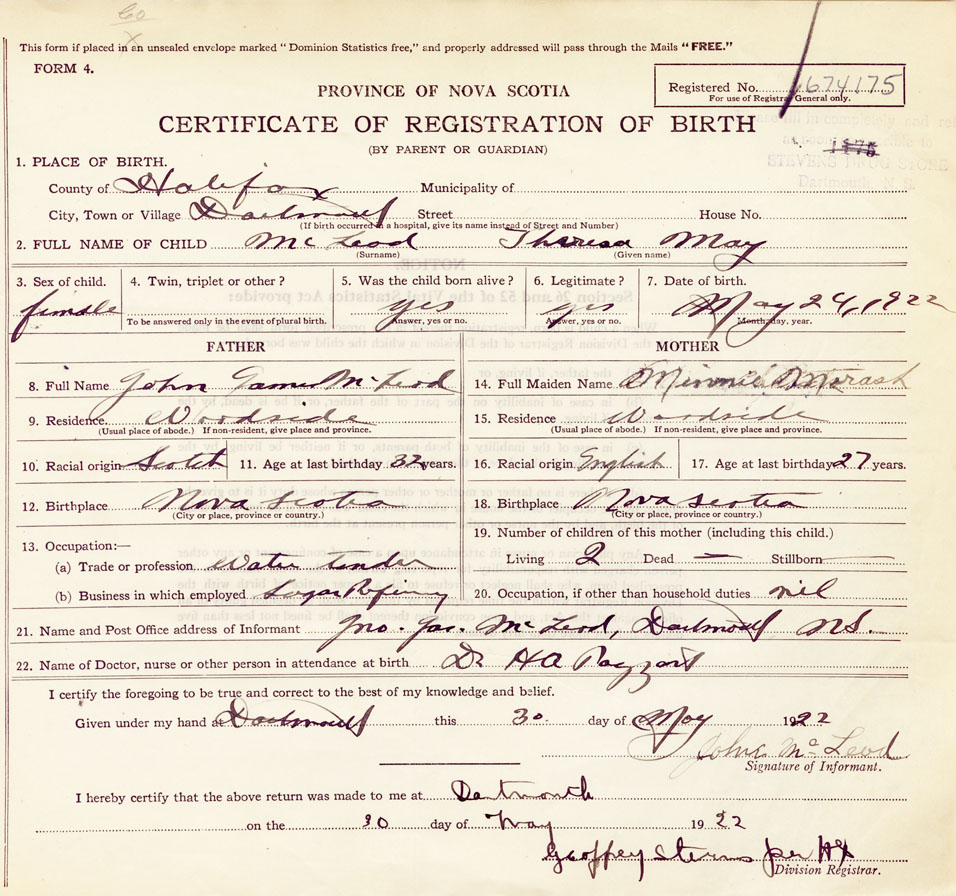 60
This form if placed in an unsealed envelope marked "Dominion Statistics free," and properly addressed will pass through the Mails "FREE."
FORM 4.
Registered No. 1674175
For use of Registrar General only.
PROVINCE OF NOVA SCOTIA
CERTIFICATE OF REGISTRATION OF BIRTH
(BY PARENT OR GUARDIAN)
1175
STEVENS DRUG STORE
Dartmouth, N. S.
1. PLACE OF BIRTH.
County of Halifax Municipality of
City, Town or Village Dartmouth Street House No.
(If birth occurred in a hospital, give its name instead of Street and Number)
2. FULL NAME OF CHILD McLeod Theresa May
(Surname) (Given name)
3. Sex of child. 4. Twin, triplet or other? 5. Was the child born alive? 6. Legitimate? 7. Date of birth.
female yes yes May 24, 1922
To be answered only in the event of plural birth. Answer, yes or no. Answer, yes or no. Month, day, year.
FATHER MOTHER
8. Full Name John James McLeod 14. Full Maiden Name Minnie
9. Residence Woodside 15. Residence Woodside
(Usual place of abode.) If non-resident, give place and province. (Usual place of abode.) If non-resident, give place and province.
10. Racial origin Scotch 11. Age at last birthday 32 years. 16. Racial origin English 17. Age at last birthday 27 years.
12. Birthplace Nova Scotia 18. Birthplace Nova Scotia
(City or place, province or country.) (City or place, province or country.)
13. Occupation:— 19. Number of children of this mother (including this child.)
(a) Trade or profession Water tender Living 2 Dead — Stillborn
(b) Business in which employed Sugar Refinery 20. Occupation, if other than household duties nil
21. Name and Post Office address of Informant Jno. Jas. McLeod, Dartmouth NS.
22. Name of Doctor, nurse or other person in attendance at birth Dr HA Payzant
I certify the foregoing to be true and correct to the best of my knowledge and belief.
Given under my hand at Dartmouth this 30 day of May 1922
John McLeod
Signature of Informant.
I hereby certify that the above return was made to me at Dartmouth
on the 30 day of May 1922
Geoffrey Sterns per
Division Registrar.